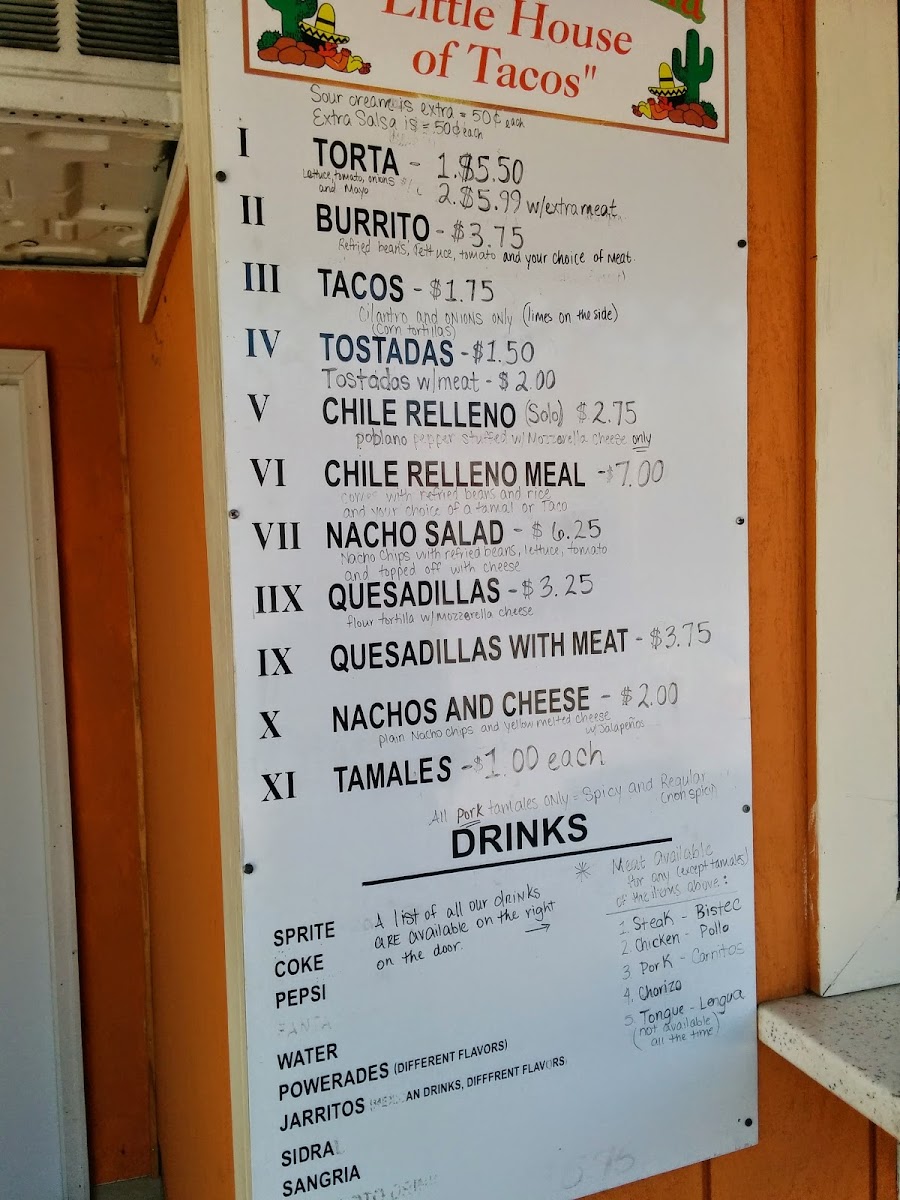 "Little House
of Tacos"
Sour cream is extra = 50¢ each
Extra Salsa is = .50¢ each
I TORTA - 1. $5.50
Lettuce, tomato, onions
and Mayo
2. $5.99 w/extra meat
II BURRITO - $3.75
Refried beans, lettuce, tomato and your choice of meat.
III TACOS - $1.75
Cilantro and onions only (limes on the side)
(corn tortillas)
IV TOSTADAS - $1.50
Tostadas w/meat - $2.00
V CHILE RELLENO (Solo) $2.75
poblano pepper stuffed w/ Mozzarella cheese only
VI CHILE RELLENO MEAL - $7.00
comes with refried beans and rice
and your choice of a tamal or Taco
VII NACHO SALAD - $6.25
Nacho Chips with refried beans, lettuce, tomato
and topped off with cheese
IIX QUESADILLAS - $3.25
flour tortilla w/ Mozzarella cheese
IX QUESADILLAS WITH MEAT - $3.75
X NACHOS AND CHEESE - $2.00
plain Nacho chips and yellow melted cheese
w/ Jalapeños
XI TAMALES - $1.00 each
All Pork tamales only = Spicy and Regular
(non spicy)
DRINKS
* Meat Available
for any (except tamales)
of the items above:
1. Steak - Bistec
2. Chicken - Pollo
3 Pork - Carnitos
4. Chorizo
5. Tongue - Lengua
(not available
all the time)
A list of all our drinks
are available on the right
on the door. →
SPRITE
COKE
PEPSI
FANTA
WATER
POWERADES (DIFFERENT FLAVORS)
JARRITOS (MEXICAN DRINKS, DIFFFRENT FLAVORS
SIDRAL
SANGRIA